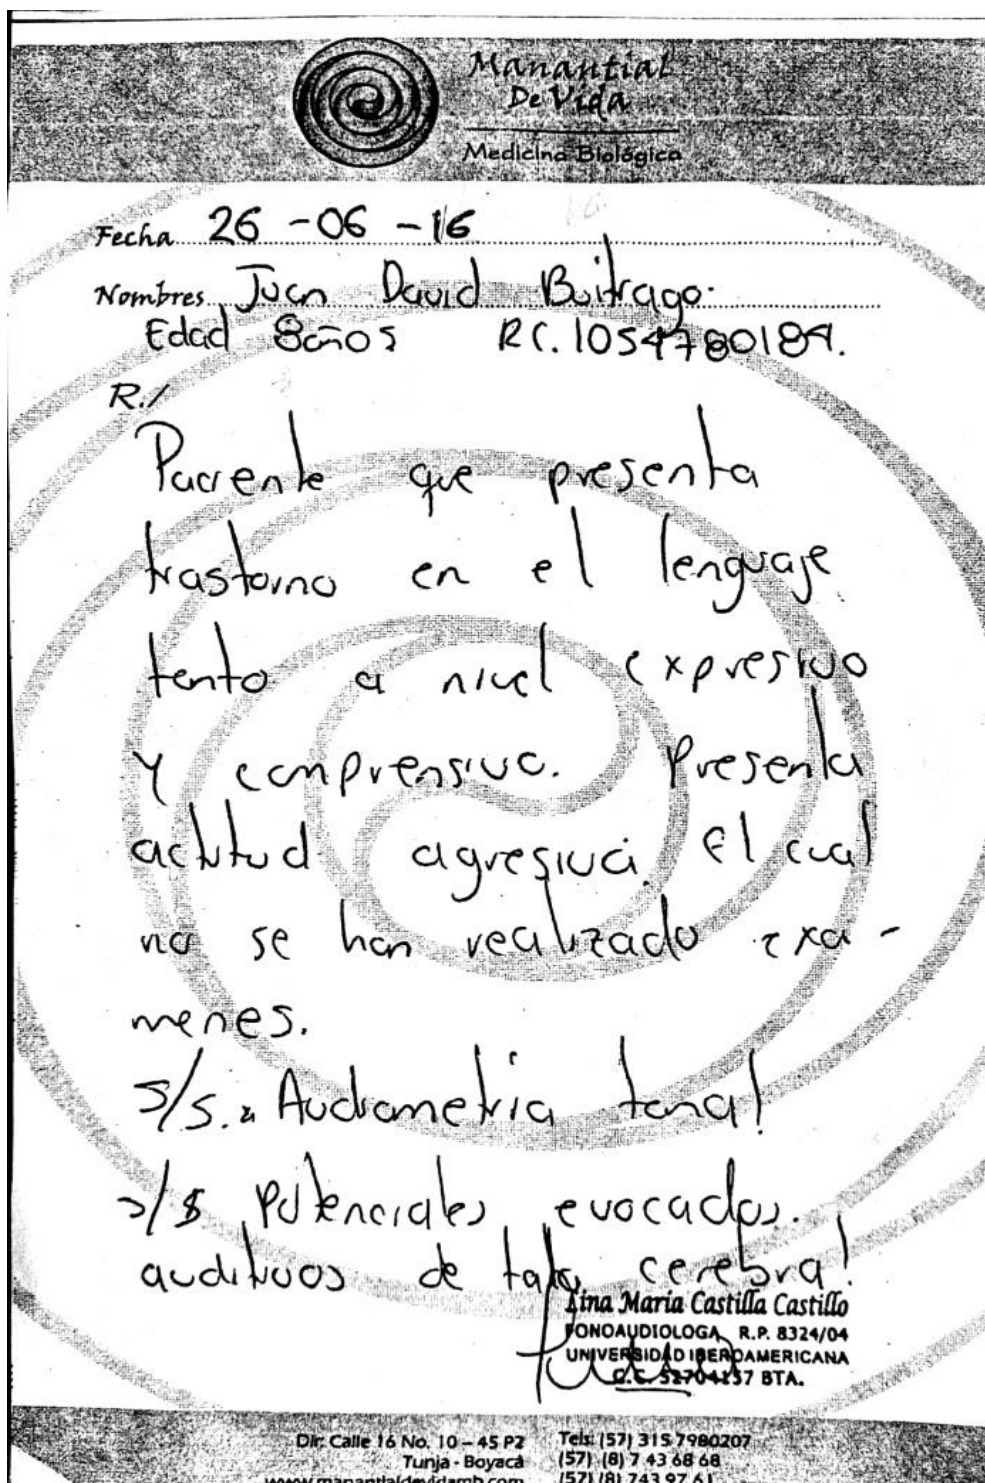 Manantial
De Vida
Medicina Biológica
Fecha 26 - 06 - 16
Nombres Juan David Buitrago.
Edad 8 años RC. 1054780184.
R./
Paciente que presenta
trastorno en el lenguaje
tanto a nivel expresivo
y comprensivo. Presenta
actitud agresiva. El cual
no se han realizado exa-
menes.
S/S. Audiometria tonal
S/S Potenciales evocados.
auditivos de tallo cerebral
Lina Maria Castilla Castillo
FONOAUDIOLOGA R.P. 8324/04
UNIVERSIDAD IBEROAMERICANA
C.C. 52704157 BTA.
Dir: Calle 16 No. 10 - 45 P2
Tunja - Boyacá
www.manantialdevidamb.com
Tels: (57) 315 7980207
(57) (8) 7 43 68 68
(57) (8) 743 97 61